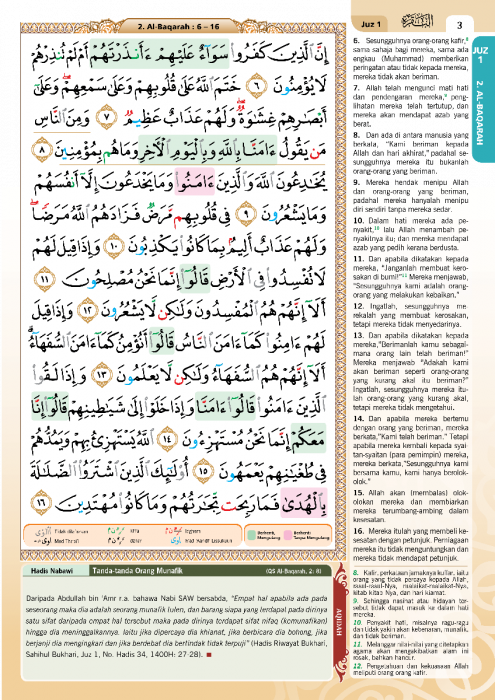 2. Al-Baqarah : 6 – 16
Juz 1
3
JUZ
1
2. AL-BAQARAH
إِنَّ الَّذِينَ كَفَرُوا سَوَاءٌ عَلَيْهِمْ ءَأَنذَرْتَهُمْ أَمْ لَمْ تُنذِرْهُمْ
لَا يُؤْمِنُونَ ٦ خَتَمَ اللَّهُ عَلَىٰ قُلُوبِهِمْ وَعَلَىٰ سَمْعِهِمْ وَعَلَىٰ
أَبْصَارِهِمْ غِشَاوَةٌ وَلَهُمْ عَذَابٌ عَظِيمٌ ٧ وَمِنَ النَّاسِ
مَن يَقُولُ ءَامَنَّا بِاللَّهِ وَبِالْيَوْمِ الْآخِرِ وَمَا هُم بِمُؤْمِنِينَ ٨
يُخَادِعُونَ اللَّهَ وَالَّذِينَ ءَامَنُوا وَمَا يَخْدَعُونَ إِلَّا أَنفُسَهُمْ
وَمَا يَشْعُرُونَ ٩ فِي قُلُوبِهِم مَّرَضٌ فَزَادَهُمُ اللَّهُ مَرَضًا
وَلَهُمْ عَذَابٌ أَلِيمٌ بِمَا كَانُوا يَكْذِبُونَ ١٠ وَإِذَا قِيلَ لَهُمْ
لَا تُفْسِدُوا فِي الْأَرْضِ قَالُوا إِنَّمَا نَحْنُ مُصْلِحُونَ ١١
أَلَا إِنَّهُمْ هُمُ الْمُفْسِدُونَ وَلَٰكِن لَّا يَشْعُرُونَ ١٢ وَإِذَا قِيلَ
لَهُمْ ءَامِنُوا كَمَا ءَامَنَ النَّاسُ قَالُوا أَنُؤْمِنُ كَمَا ءَامَنَ السُّفَهَاءُ
أَلَا إِنَّهُمْ هُمُ السُّفَهَاءُ وَلَٰكِن لَّا يَعْلَمُونَ ١٣ وَإِذَا لَقُوا
الَّذِينَ ءَامَنُوا قَالُوا ءَامَنَّا وَإِذَا خَلَوْا إِلَىٰ شَيَاطِينِهِمْ قَالُوا إِنَّا
مَعَكُمْ إِنَّمَا نَحْنُ مُسْتَهْزِءُونَ ١٤ اللَّهُ يَسْتَهْزِئُ بِهِمْ وَيَمُدُّهُمْ
فِي طُغْيَانِهِمْ يَعْمَهُونَ ١٥ أُولَٰئِكَ الَّذِينَ اشْتَرَوُا الضَّلَالَةَ
بِالْهُدَىٰ فَمَا رَبِحَت تِّجَارَتُهُمْ وَمَا كَانُوا مُهْتَدِينَ ١٦
Hadis Nabawi
Tanda-tanda Orang Munafik
(QS Al-Baqarah, 2: 8)
Daripada Abdullah bin 'Amr r.a. bahawa Nabi SAW bersabda, "Empat hal apabila ada pada
seseorang maka dia adalah seorang munafik tulen, dan barang siapa yang terdapat pada dirinya
satu sifat daripada empat hal tersebut maka pada dirinya terdapat sifat nifaq (kemunafikan)
hingga dia meninggalkannya. Iaitu jika dipercaya dia khianat, jika berbicara dia bohong, jika
berjanji dia mengingkari dan jika berdebat dia berlindak tidak terpuji" (Hadis Riwayat Bukhari,
Sahihul Bukhari, Juz 1, No. Hadis 34, 1400H: 27-28).
6. Sesungguhnya orang-orang kafir,8
sama sahaja bagi mereka, sama ada
engkau (Muhammad) memberikan
peringatan atau tidak kepada mereka,
mereka tidak akan beriman.
7. Allah telah mengunci mati hati
dan pendengaran mereka,9 peng-
lihatan mereka telah tertutup, dan
mereka akan mendapat azab yang
berat.
8. Dan ada di antara manusia yang
berkata, "Kami beriman kepada
Allah dan hari akhirat," padahal se-
sungguhnya mereka itu bukanlah
orang-orang yang beriman.
9. Mereka hendak menipu Allah
dan orang-orang yang beriman,
padahal mereka hanyalah menipu
diri sendiri tanpa mereka sedar.
10. Dalam hati mereka ada pe-
nyakit,10 lalu Allah menambah pe-
nyakitnya itu; dan mereka mendapat
azab yang pedih kerana berdusta.
11. Dan apabila dikatakan kepada
mereka, "Janganlah membuat kero-
sakan di bumi!"11 Mereka menjawab,
"Sesungguhnya kami adalah orang-
orang yang melakukan kebaikan."
12. Ingatlah, sesungguhnya me-
rekalah yang membuat kerosakan,
tetapi mereka tidak menyedarinya.
13. Dan apabila dikatakan kepada
mereka,"Berimanlah kamu sebagai-
mana orang lain telah beriman!"
Mereka menjawab "Adakah kami
akan beriman seperti orang-orang
yang kurang akal itu beriman?"
Ingatlah, sesungguhnya mereka itu-
lah orang-orang yang kurang akal,
tetapi mereka tidak mengetahui.
14. Dan apabila mereka bertemu
dengan orang yang beriman, mereka
berkata,"Kami telah beriman." Tetapi
apabila mereka kembali kepada syai-
tan-syaitan (para pemimpin) mereka,
mereka berkata,"Sesungguhnya kami
bersama kamu, kami hanya berolok-
olok."
15. Allah akan (membalas) olok-
olokan mereka dan membiarkan
mereka terumbang-ambing dalam
kesesatan.
16. Mereka itulah yang membeli ke-
sesatan dengan petunjuk. Perniagaan
mereka itu tidak menguntungkan dan
mereka tidak mendapat petunjuk.
AQIDAH
8. Kafir, perkataan jamaknya kuffar, iaitu
orang yang tidak percaya kepada Allah,
rasul-rasul-Nya, malaikat-malaikat-Nya,
kitab kitab Nya, dan hari kiamat.
9. Sehingga nasihat atau hidayah ter-
sebut tidak dapat masuk ke dalam hati
mereka.
10. Penyakit hati, misalnya ragu-ragu
dan tidak yakin akan kebenaran, munafik,
dan tidak beriman.
11. Melanggar nilai-nilai yang ditetapkan
agama akan mengakibatkan alam ini
rosak, bahkan hancur.
12. Pengetahuan dan kekuasaan Allah
meliputi orang orang kafir.